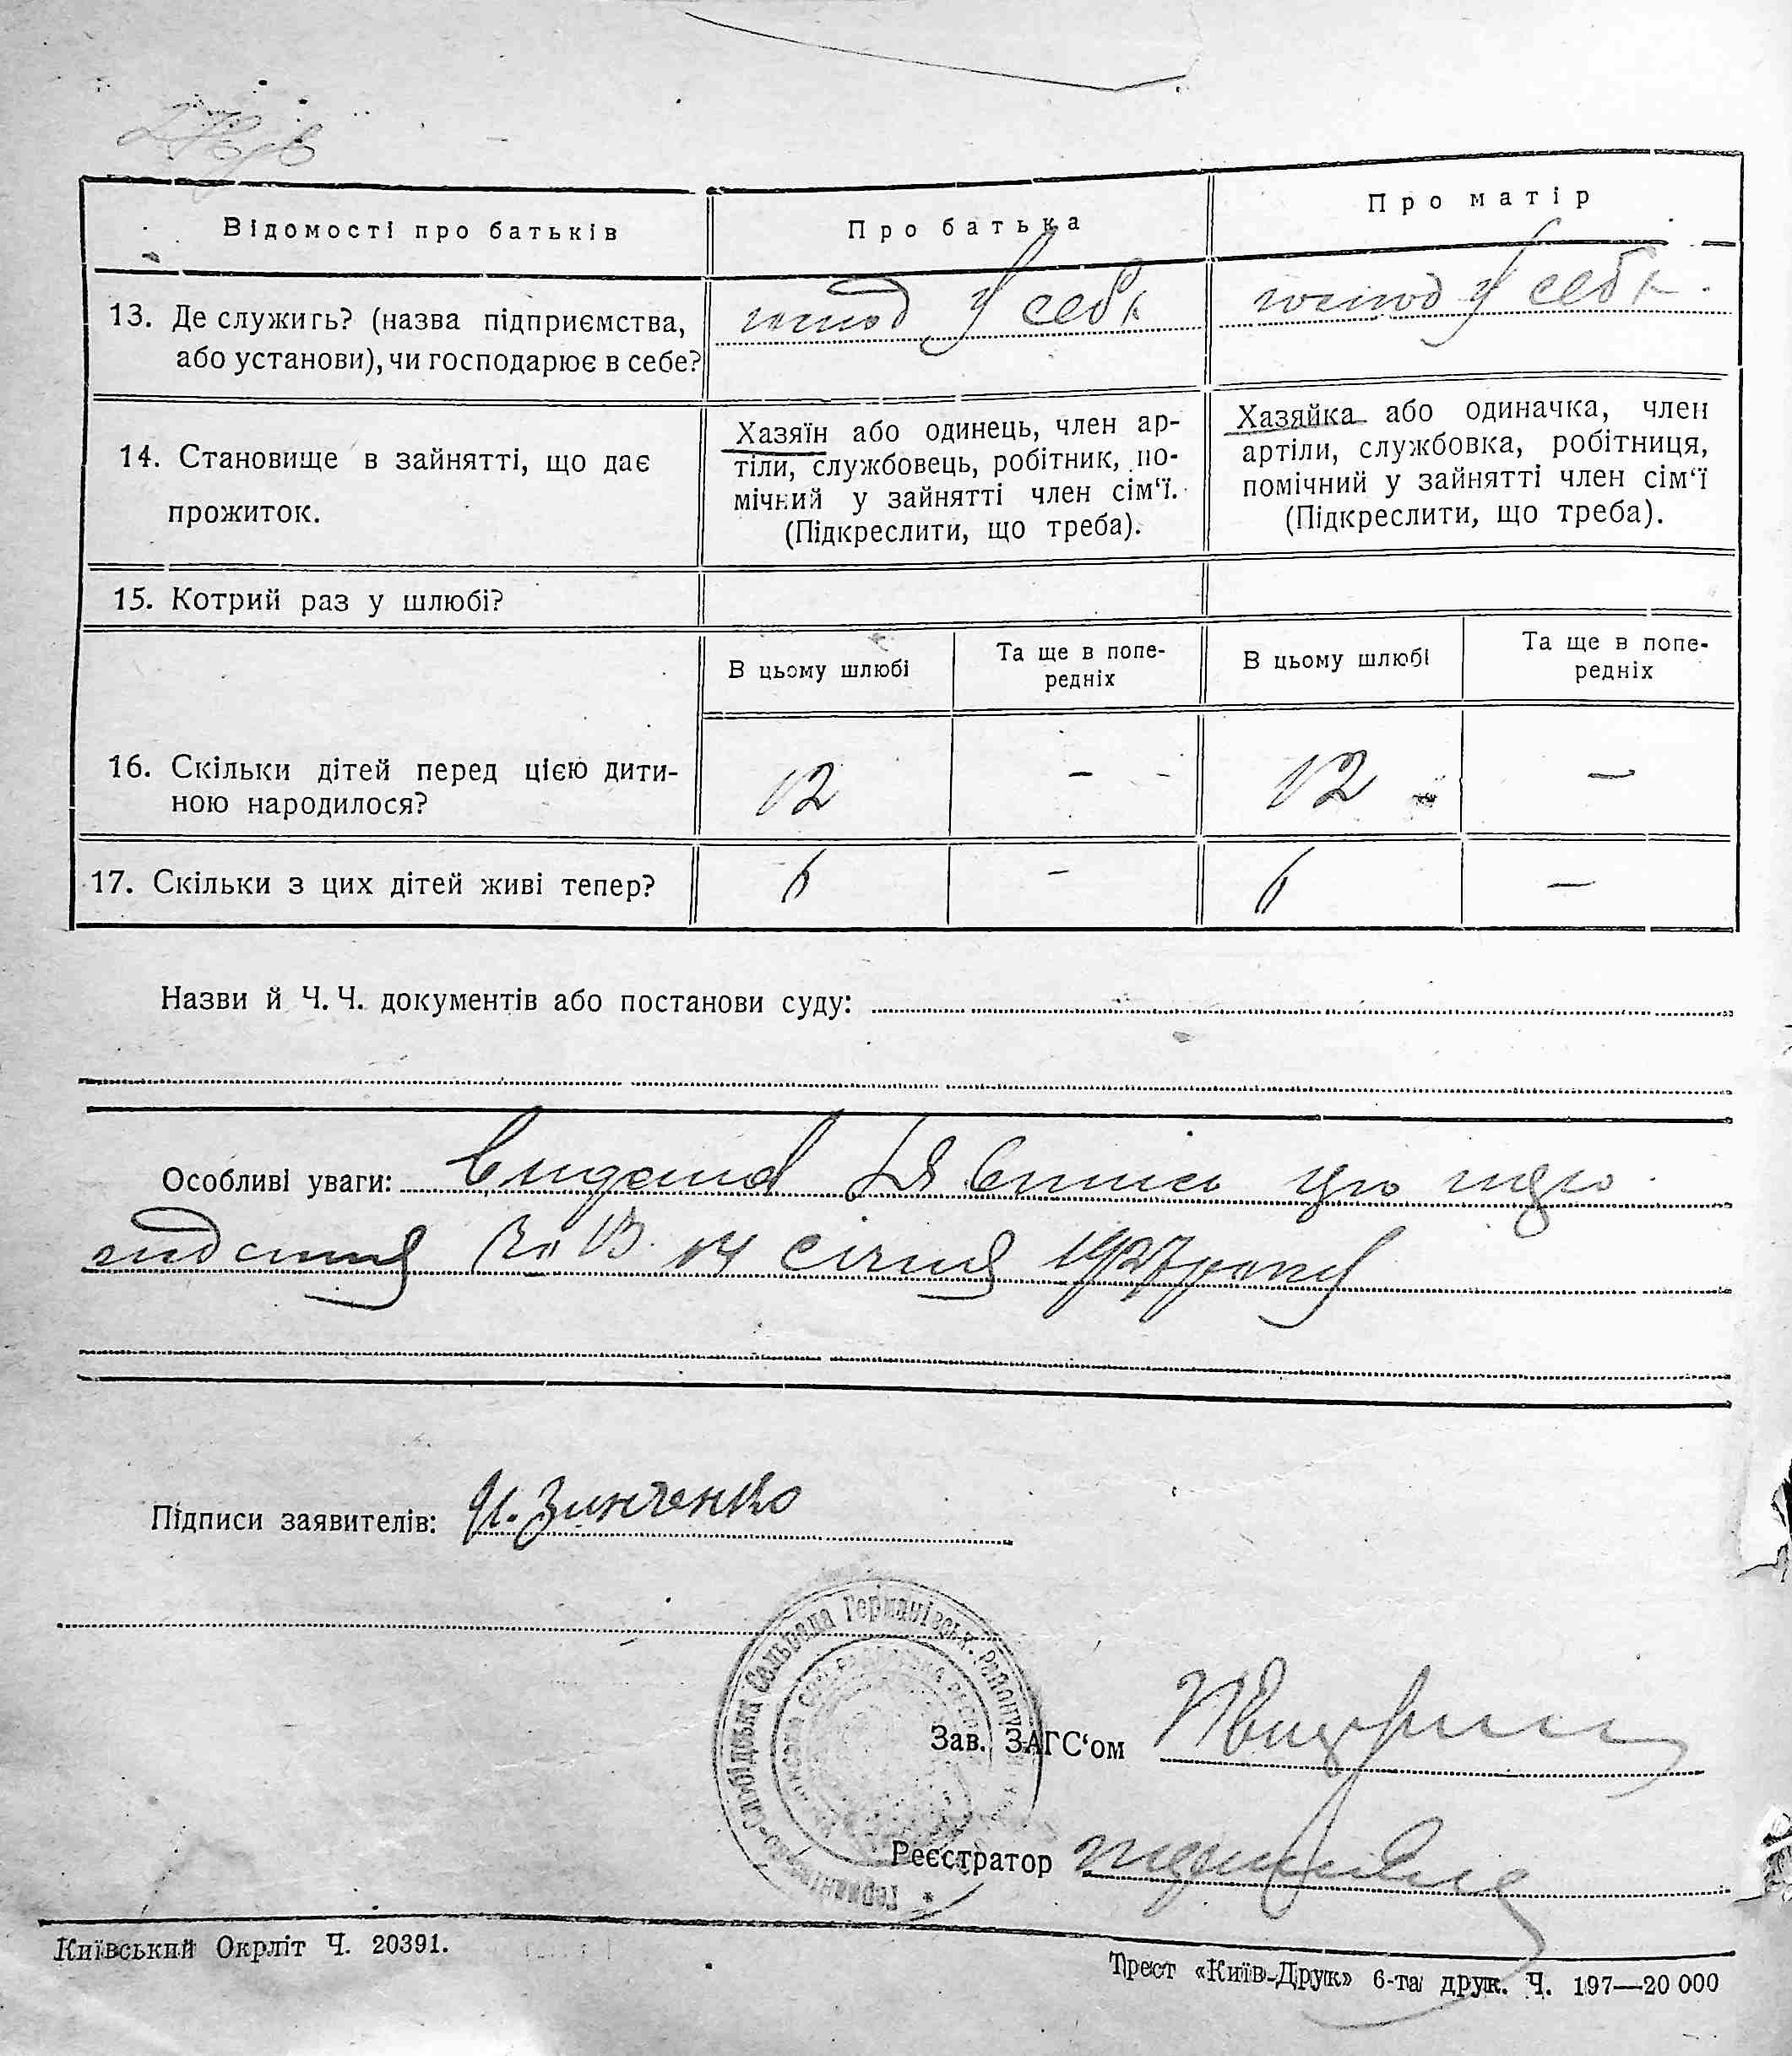 Відомості про батьків
Про батька
Про матір
13. Де служить? (назва підприємства, або установи), чи господарює в себе?
господ у себе
господ у себе.
14. Становище в зайнятті, що дає прожиток.
Хазяїн або одинець, член ар-
тіли, службовець, робітник, по-
мічний у зайнятті член сім‘ї.
(Підкреслити, що треба).
Хазяйка або одиначка, член
артіли, службовка, робітниця,
помічний у зайнятті член сім‘ї
(Підкреслити, що треба).
15. Котрий раз у шлюбі?
В цьому шлюбі
Та ще в попе-
редніх
В цьому шлюбі
Та ще в попе-
редніх
16. Скільки дітей перед цією дити-
ною народилося?
12 - 12 -
17. Скільки з цих дітей живі тепер?
6 - 6 -
Назви й Ч. Ч. документів або постанови суду:
Особливі уваги:
січня 1927 року
Підписи заявителів: Зинченко
Германівсько-Слобідська Сельрада Германівськ. Району
Зав. ЗАГС‘ом
Реєстратор
Київський Окрліт Ч. 20391.
Трест «Київ-Друк» 6-та друк. Ч. 197—20 000